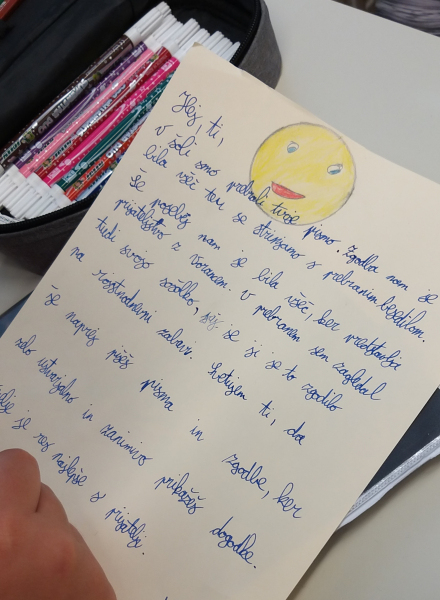 Hej, ti,
v šoli smo prebrali tvoje pismo. Zgodba nam je
bila všeč ter se strinjamo s prebranim besedilom.
Še posebej nam je bila všeč, ker predstavlja
prijateljstvo z
v prebranem sem zagledal
tudi svojo sošolko, saj se ji je to zgodilo
na rojstnodnevni zabavi. Svetujem ti, da
še naprej pišeš pisma in zgodbe, ker
zelo ustvarjalno in zanimivo prikažeš dogodke.
je res najlepše s prijatelji.